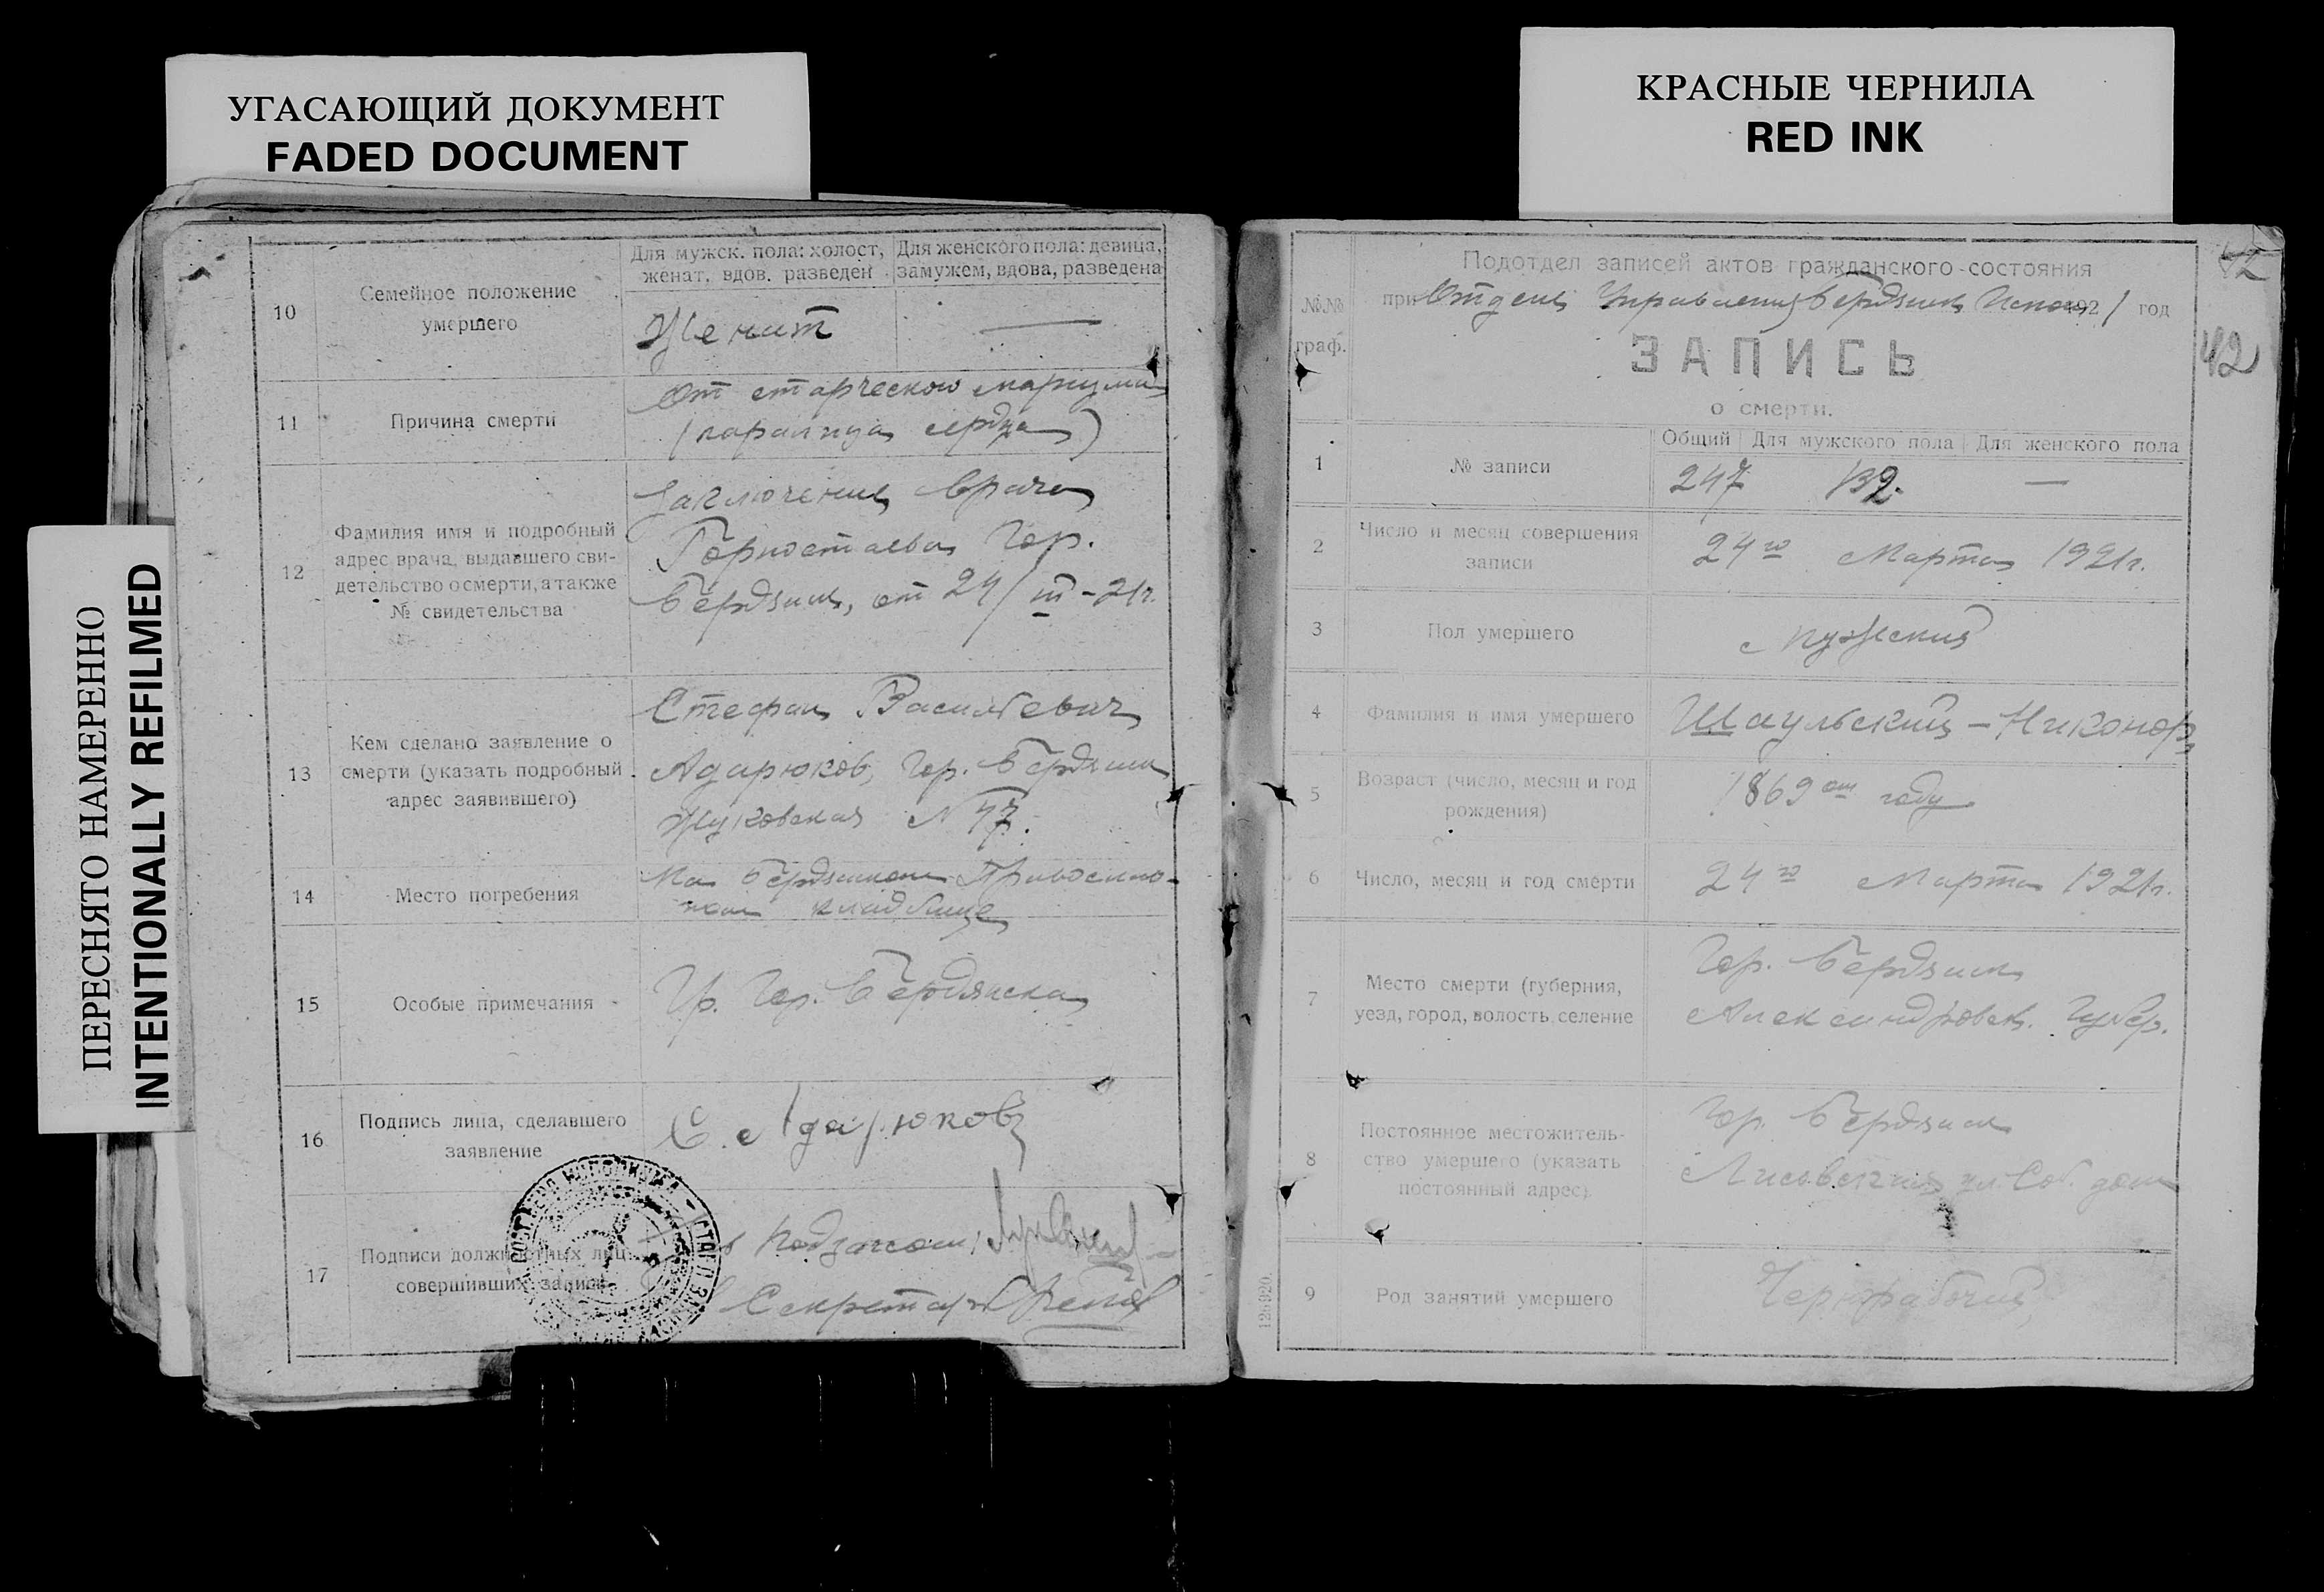 УГАСАЮЩИЙ ДОКУМЕНТ
FADED DOCUMENT
КРАСНЫЕ ЧЕРНИЛА
RED INK
ПЕРЕСНЯТО НАМЕРЕННО
INTENTIONALLY REFILMED
Для мужск. пола: холост, женат, вдов. разведен
Для женского пола: девица, замужем, вдова, разведена
10 Семейное положение умершего
Женат —
11 Причина смерти
От старческого
(паралича сердца)
12 Фамилия имя и подробный адрес врача, выдавшего свидетельство о смерти, а также № свидетельства
Заключение врача
Горностаева Гор.
Бердянск, от 24/III-21г.
13 Кем сделано заявление о смерти (указать подробный адрес заявившего)
Стефан Васильевич
Адарюков, Гор. Бердянск
Жуковская N 47.
14 Место погребения
На Бердянском Православ-
ном кладбище
15 Особые примечания
Гр. Гор. Бердянска
16 Подпись лица, сделавшего заявление
С. Адарюковъ
17 Подписи должностных лиц совершивших запись
Секретарь
42
42
Подотдел записей актов гражданского состояния
№№ граф.
при Отделе Управления Бердянск Испол 1921 год
ЗАПИСЬ
о смерти.
Общий Для мужского пола Для женского пола
1 № записи
247 132. —
2 Число и месяц совершения записи
24го Марта 1921г.
3 Пол умершего
Мужской
4 Фамилия и имя умершего
Шаульский - Никонор
5 Возраст (число, месяц и год рождения)
1869 году
6 Число, месяц и год смерти
24го Марта 1921г.
7 Место смерти (губерния, уезд, город, волость, селение
Гор. Бердянск
Александровск. Губер.
8 Постоянное местожительство умершего (указать постоянный адрес)
Гор. Бердянск
ул. Соб. дом
9 Род занятий умершего
Чернорабочий